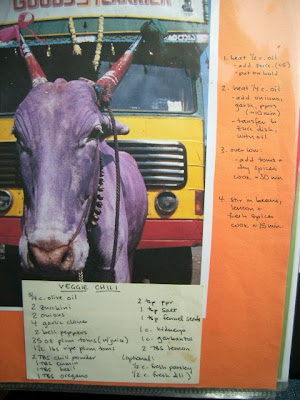 GOODS CARRIER
1. heat ½ c. oil
- add zucc. (x5)
- put on hold
2. heat ¼ c. oil
- add onions,
garlic, pprs
(≈10 min)
- transfer to
zucc dish,
with oil
3. over low:
- add toms +
dry spices
cook ≈ 30 min
4. stir in beans,
lemon +
fresh spices
cook ≈ 15 min
VEGGIE CHILI
¾ c. olive oil
2 zucchini
2 onions
4 garlic cloves
2 bell peppers
35 oz plum toms (w/juice)
1½ lbs ripe plum toms
2 TBS chili powder
1 TBS cumin
1 TBS basil
1 TBS oregano
2 tsp ppr
1 tsp salt
1 tsp fennel seeds
1 c. kidneys
1 c. garbanzo
2 TBS lemon
(optional:)
½ c. fresh parsley
½ c. fresh dill